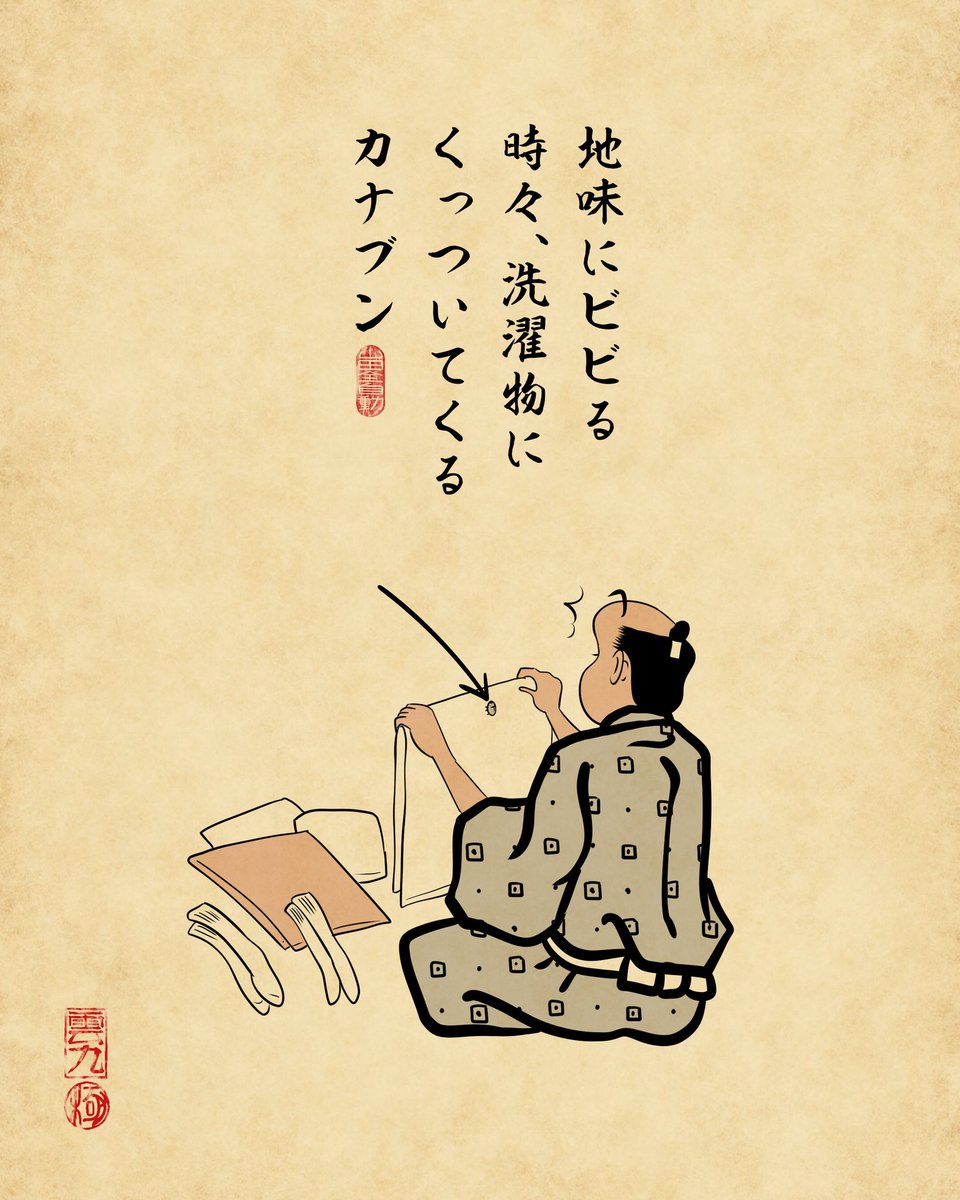 地味にビビる
時々、洗濯物に
くっついてくる
カナブン